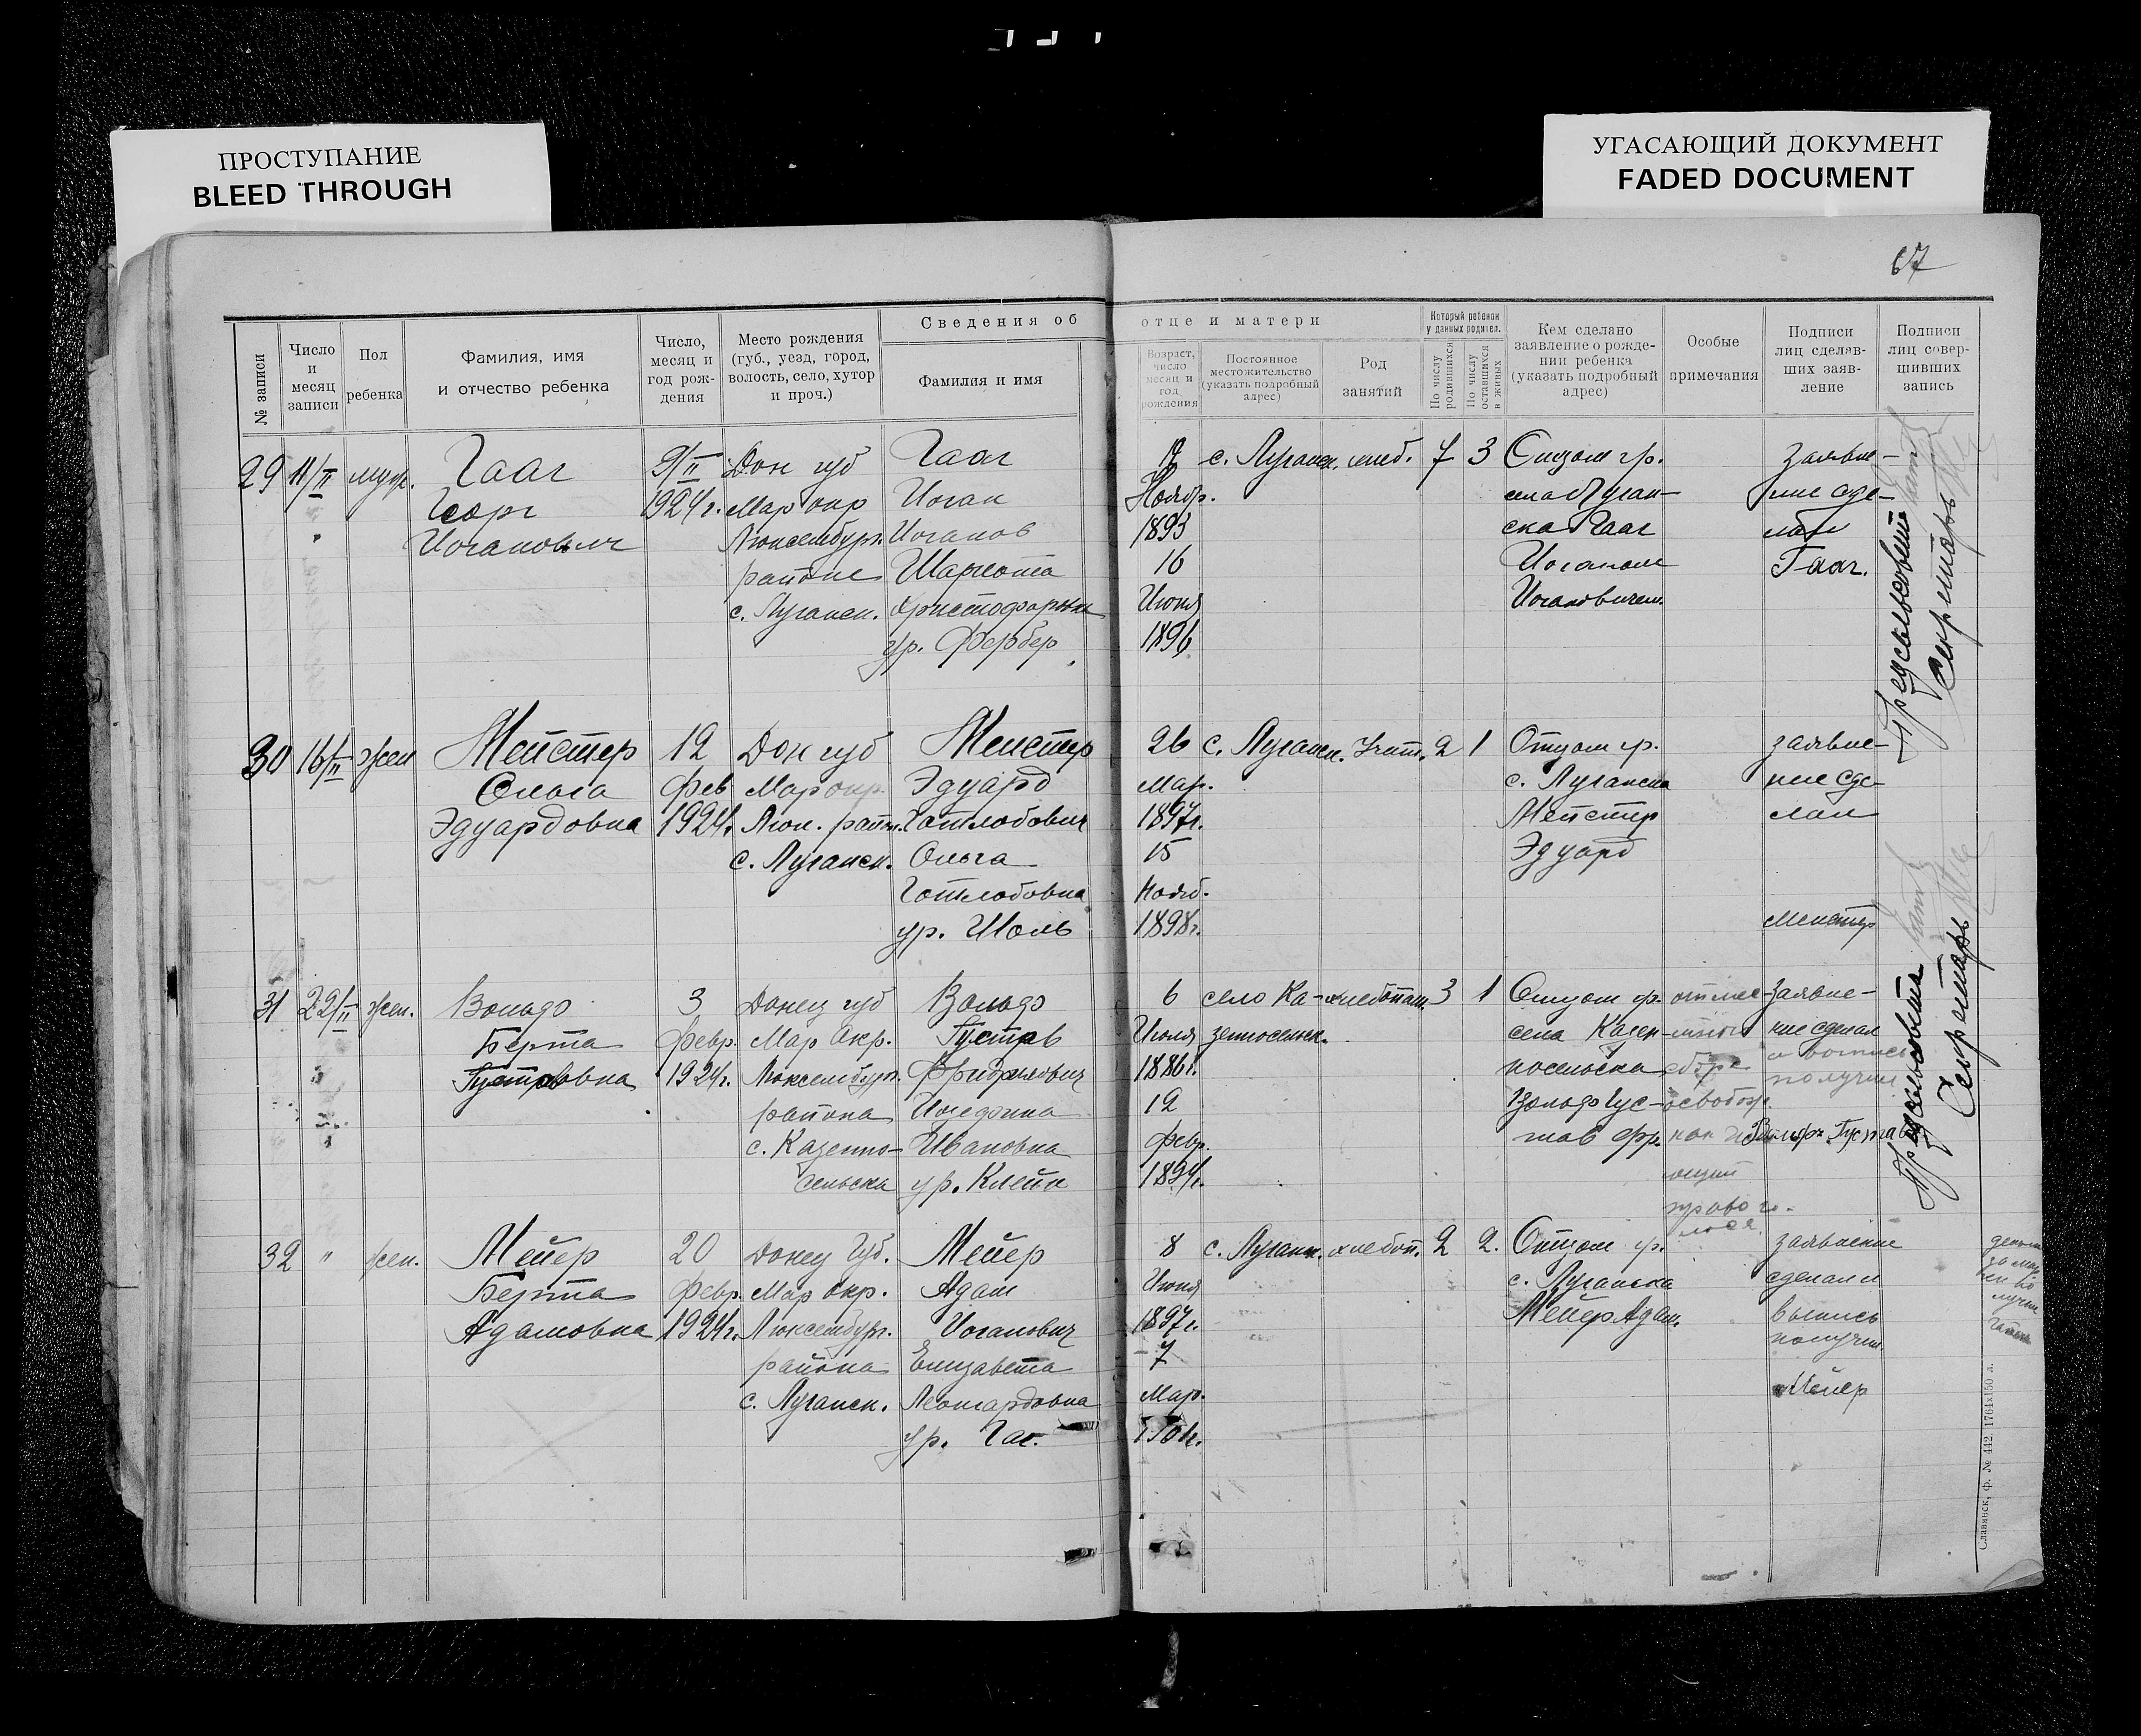 ПРОСТУПАНИЕ
BLEED THROUGH
УГАСАЮЩИЙ ДОКУМЕНТ
FADED DOCUMENT
67
№ записи
Число и месяц записи
Пол ребенка
Фамилия, имя и отчество ребенка
Число, месяц и год рождения
Место рождения (губ., уезд, город, волость, село, хутор и проч.)
Сведения об отце и матери
Фамилия и имя
Возраст, число месяц и год рождения
Постоянное местожительство (указать подробный адрес)
Род занятий
Который ребенок у данных родител.
По числу родившихся
По числу оставшихся в живых
Кем сделано заявление о рождении ребенка (указать подробный адрес)
Особые примечания
Подписи лиц сделавших заявление
Подписи лиц совершивших запись
29 11/II муж. Гааг 9/II Дон губ Гааг 19 с. Луганск. хлеб. 7 3 Отцом гр. Заявле-
Георг 1924г. Мар окр Иоган Ноябр. села Луган- ние сде-
Иоганович Люксембург. Иоганов 1893 ска Гааг лал
районе Шарлота 16 Иоганом Гааг.
с. Луганск. Христофоровна Июня Иогановичем.
ур. Фербер 1896
Предсельсовета
Секретарь
30 16/II жен Мейстер 12 Дон губ Мейстер 26 с. Луганск. Учит. 2 1 Отцом гр. заявле-
Ольга фев Мар окр. Эдуард Мар. с. Луганска ние сде-
Эдуардовна 1924г. Люк. район. Готлобович 1897г. Мейстер лал
с. Луганск. Ольга 15 Эдуард
Готлобовна Нояб.
ур. Шоль 1898г. Мейстер
31 22/II жен. Вольф 3 Донец губ Вольф 6 село Ка- хлебопаш. 3 1 Отцом гр. Заявле-
Берта февр. Мар Окр. Густав Июля зенносельск. села Казен- ние сделал
Густавовна 1924г. Люксембург. Фридрихович 1886г. носельска получил
района 12 Вольф Гус- освобож.
с. Казенно- Ивановна февр. тав Фр. Густав
сельска ур. Клейн
Предсельсовета
Секретарь
32 " жен. Мейер 20 Донец Губ. Мейер 8 с. Луганск. хлебоп. 2 2. Отцом гр. заявление
Берта февр. Мар окр. Адам Июня с. Луганска сделал и
Адамовна 1924г. Люксембург. Иоганович 1897г. Мейер Адам. выпись
района Елизавета 7 получил.
с. Луганск. Леонгардовна Мар. Мейер
ур. Гаг.
Славянск, ф. № 442. 1764х150 л.